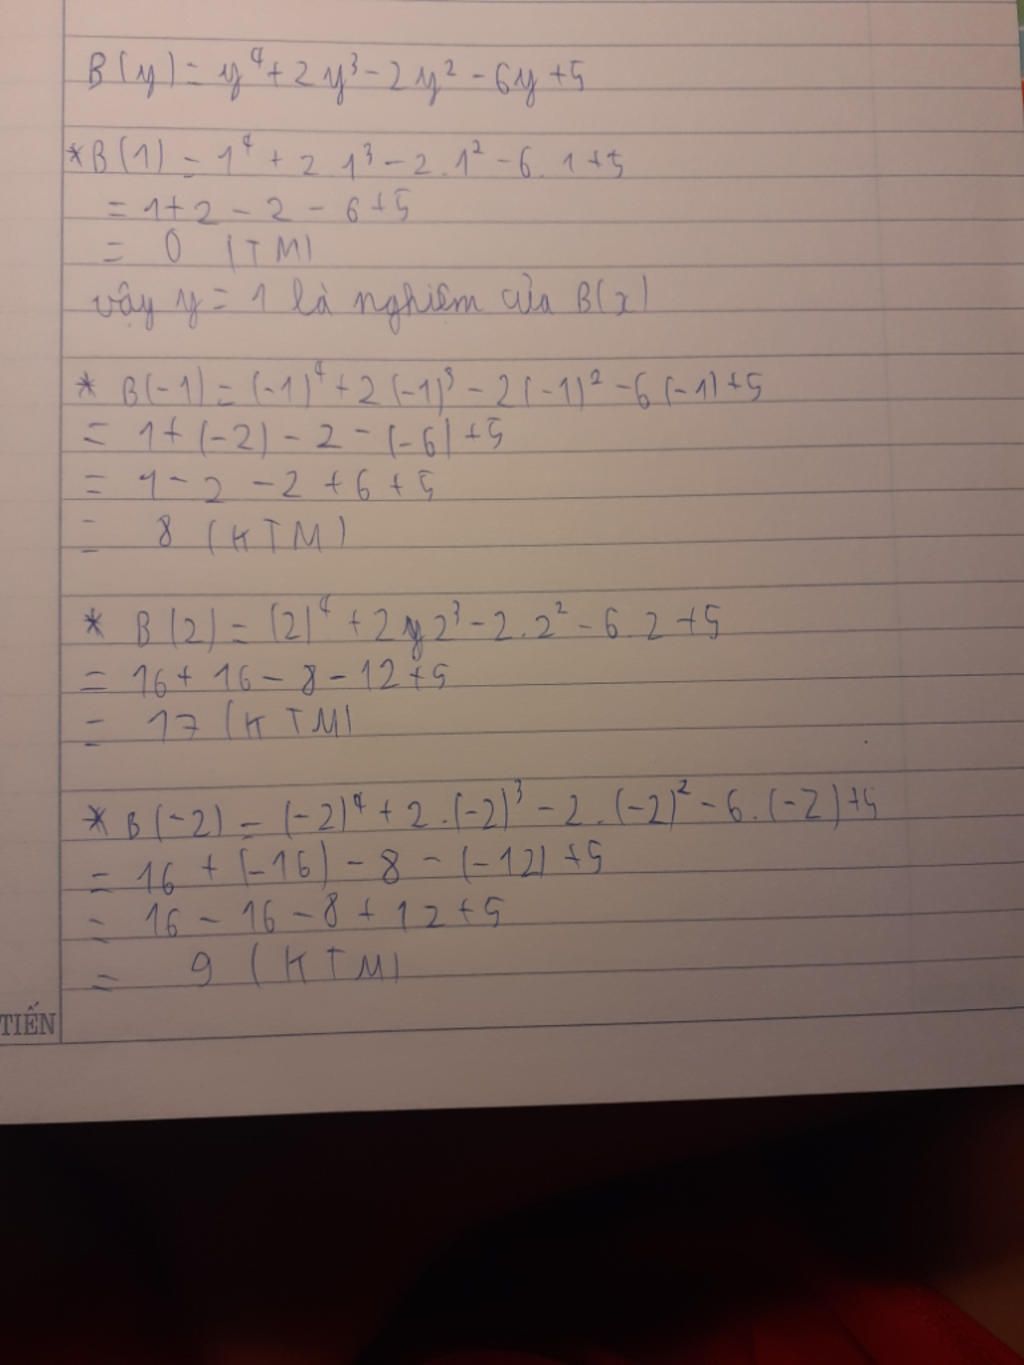 B(y) = y⁴ + 2y³ - 2y² - 6y + 5
* B(1) = 1⁴ + 2.1³ - 2.1² - 6.1 + 5
= 1 + 2 - 2 - 6 + 5
= 0 (TM)
vậy y = 1 là nghiệm của B(x)
* B(-1) = (-1)⁴ + 2(-1)³ - 2(-1)² - 6(-1) + 5
= 1 + (-2) - 2 - (-6) + 5
= 1 - 2 - 2 + 6 + 5
= 8 (KTM)
* B(2) = (2)⁴ + 2y2³ - 2.2² - 6.2 + 5
= 16 + 16 - 8 - 12 + 5
= 17 (KTM)
* B(-2) = (-2)⁴ + 2.(-2)³ - 2.(-2)² - 6.(-2) + 5
= 16 + (-16) - 8 - (-12) + 5
= 16 - 16 - 8 + 12 + 5
= 9 (KTM)
TIẾN